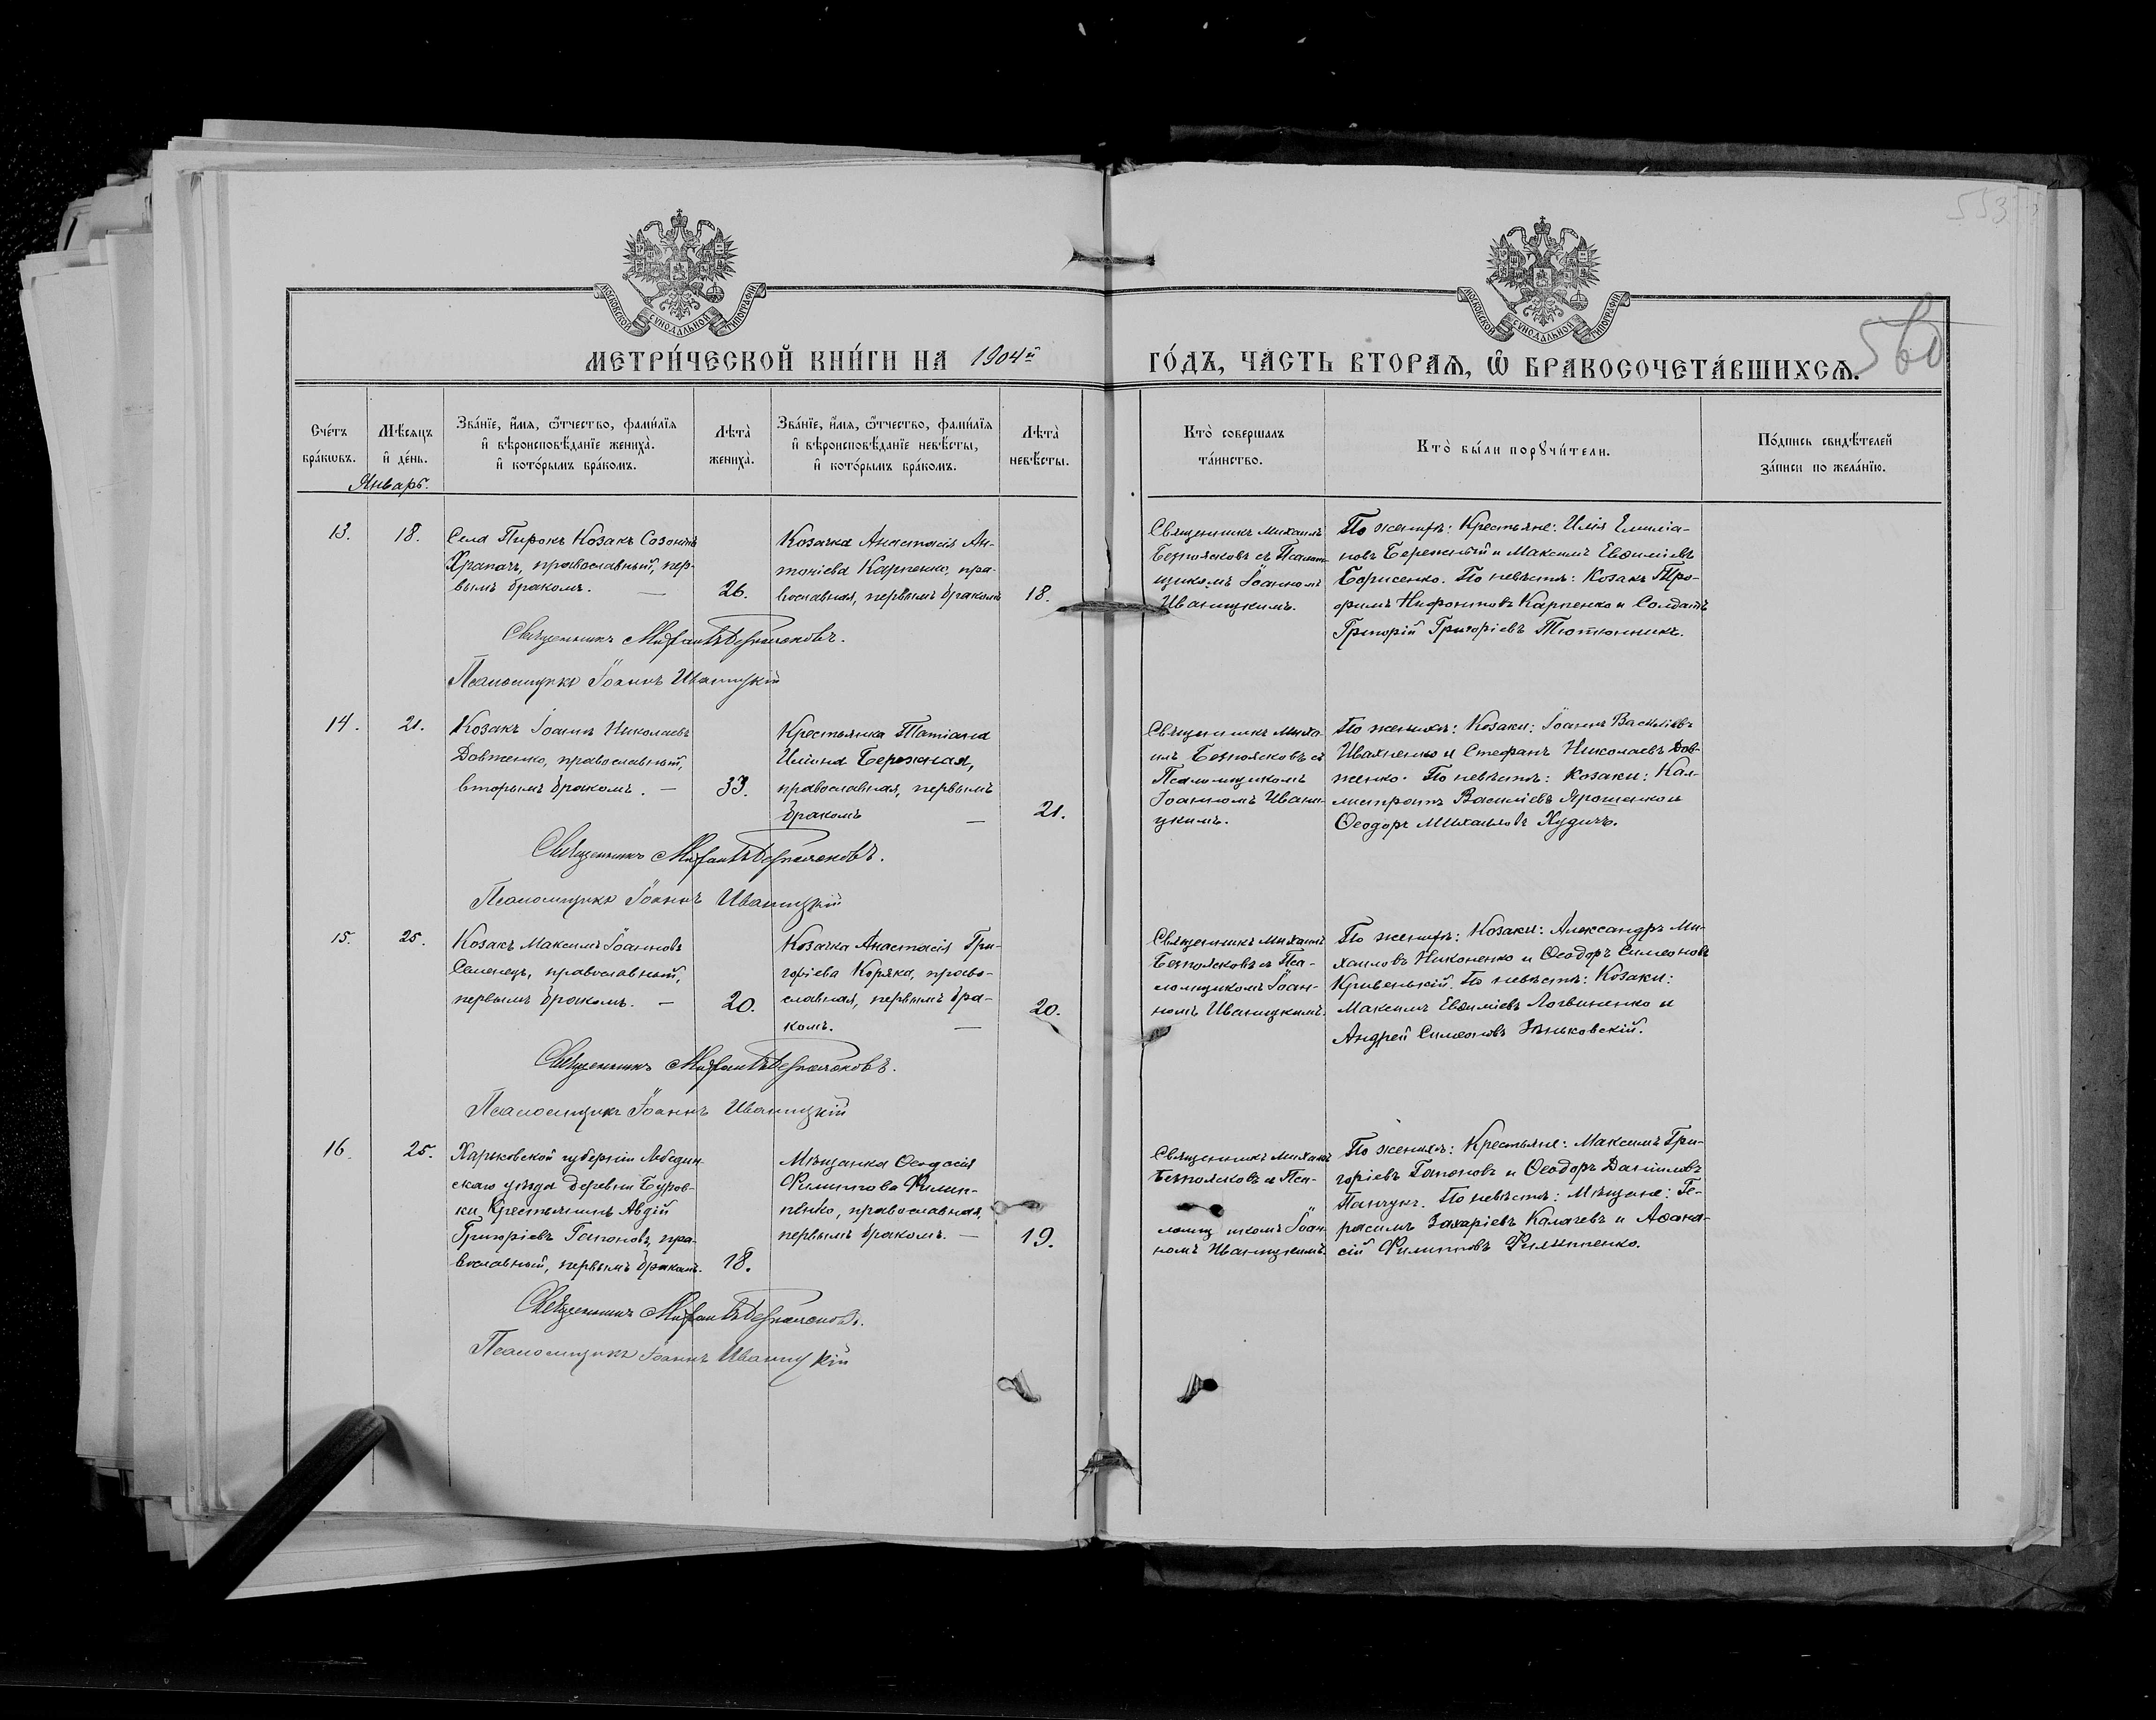 553
МОСКОВСКОЙ СѴНОДАЛЬНОЙ ТИПОГРАФІИ
МОСКОВСКОЙ СѴНОДАЛЬНОЙ ТИПОГРАФІИ
560
МЕТРИ́ЧЕСКОЙ КНИ́ГИ НА 1904й
ГО́ДЪ, ЧА́СТЬ ВТОРАѦ, Ѡ БРАКОСОЧЕТА́ВШИХСѦ.
Сче́тъ
бра́кѡвъ.
Мѣ́сяцъ
и де́нь.
Зва́нїе, и҆́мя, ѻ҆́тчество, фами́лїя
и҆ вѣроисповѣ́данїе жениха̀.
и҆ кото́рымъ бра́комъ.
Лѣта̀
жениха̀.
Зва́нїе, и҆́мя, ѻ҆́тчество, фами́лїя
и҆ вѣроисповѣ́данїе невѣ́сты,
и҆ кото́рымъ бра́комъ.
Лѣта̀
невѣ́сты.
Кто̀ соверша́лъ
та́инство.
Кто̀ бы́ли порꙋчи́тели.
По́дпись свидѣ́телей
за́писи по жела́нїю.
Январь.
13.
18.
Села Пирокъ Козакъ Созонтъ
Храпачъ, православный, пер-
вымъ бракомъ. —
26.
Козачка Анастасія Ан-
тоніева Карпенко, пра-
вославная, первымъ бракомъ
18.
Священникъ Михаилъ
Безпоясковъ съ Псалом-
щикомъ Іоанномъ
Иваницкимъ.
По женихѣ: Крестьяне: Илія Емиліа-
новъ Бережный и Максимъ Евѳиміевъ
Борисенко. По невѣстѣ: Козакъ Тро-
фимъ Нифонтовъ Карпенко и Солдатъ
Григорій Григоріевъ Тютюнникъ.
Священникъ Михаилъ Безпоясковъ.
Псаломщикъ Іоаннъ Иваницкій
14.
21.
Козакъ Іоаннъ Николаевъ
Довженко, православный,
вторымъ бракомъ. —
33.
Крестьянка Татіана
Иліина Бережная,
православная, первымъ
бракомъ —
21.
Священникъ Миха-
илъ Безпоясковъ съ
Псаломщикомъ
Іоанномъ Ивани-
цкимъ.
По женихѣ: Козаки: Іоаннъ Василіевъ
Ивахненко и Стефанъ Николаевъ Дов-
женко. По невѣстѣ: Козаки: Кал-
листратъ Василіевъ Ярошенко и
Ѳеодоръ Михаиловъ Худичъ.
Священникъ Михаилъ Безпоясковъ.
Псаломщикъ Іоаннъ Иваницкій
15.
25.
Козакъ Максимъ Іоанновъ
Семенецъ, православный,
первымъ бракомъ. —
20.
Козачка Анастасія Гри-
горіева Коряка, право-
славная, первымъ бра-
комъ. —
20.
Священникъ Михаилъ
Безпоясковъ съ Пса-
ломщикомъ Іоан-
номъ Иваницкимъ.
По женихѣ: Козаки: Александръ Ми-
хаиловъ Никоненко и Ѳеодоръ Симеоновъ
Кривенькій. По невѣстѣ: Козаки:
Максимъ Евѳиміевъ Логвиненко и
Андрей Симеоновъ Зѣньковскій.
Священникъ Михаилъ Безпоясковъ.
Псаломщикъ Іоаннъ Иваницкій
16.
25.
Харьковской губерніи Лебедин-
скаго уѣзда деревни Буров-
ки Крестьянинъ Авдій
Григоріевъ Гапоновъ, пра-
вославный, первымъ бракомъ.
18.
Мѣщанка Ѳеодосія
Филиппова Филип-
пенко, православная,
первымъ бракомъ. —
19.
Священникъ Михаилъ
Безпоясковъ съ Пса-
ломщикомъ Іоан-
номъ Иваницкимъ.
По женихѣ: Крестьяне: Максимъ Гри-
горіевъ Гапоновъ и Ѳеодоръ Даніиловъ
Панчукъ. По невѣстѣ: Мѣщане: Ге-
расимъ Захаріевъ Калачевъ и Аѳана-
сій Филипповъ Филиппенко.
Священникъ Михаилъ Безпоясковъ.
Псаломщикъ Іоаннъ Иваницкій